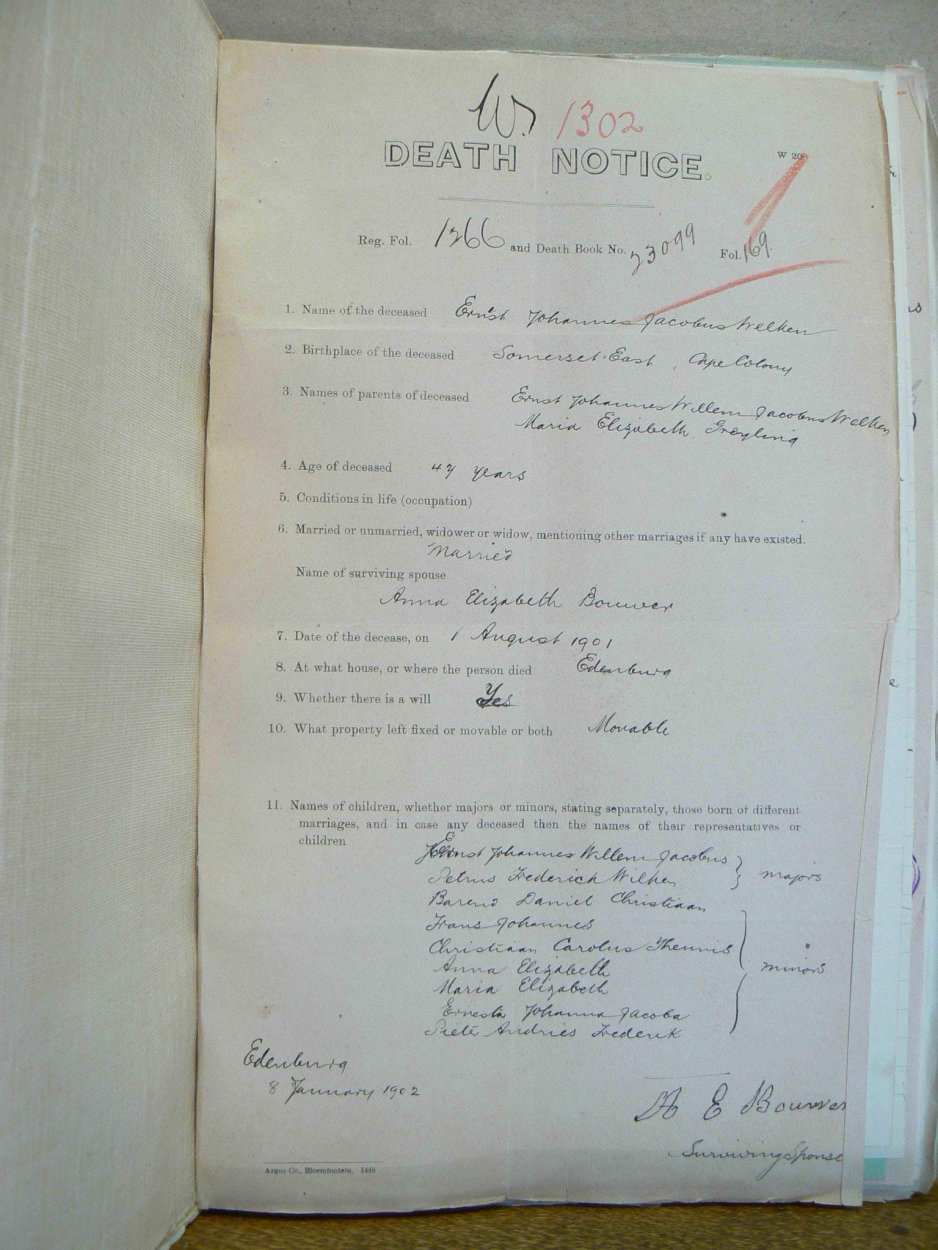 W. 1302
DEATH NOTICE.
W 20
Reg. Fol. 1266 and Death Book No. 23099 Fol. 169.
1. Name of the deceased Ernst Johannes Jacobus Welken
2. Birthplace of the deceased Somerset-East, Cape Colony
3. Names of parents of deceased Ernst Johannes Willem Jacobus Welken
Maria Elizabeth Greyling
4. Age of deceased 47 years
5. Conditions in life (occupation)
6. Married or unmarried, widower or widow, mentioning other marriages if any have existed.
Married
Name of surviving spouse
Anna Elizabeth Bouwer
7. Date of the decease, on 1 August 1901
8. At what house, or where the person died Edenburg
9. Whether there is a will Yes
10. What property left fixed or movable or both Movable
11. Names of children, whether majors or minors, stating separately, those born of different
marriages, and in case any deceased then the names of their representatives or
children
Ernst Johannes Willem Jacobus
Petrus Frederich Wilken majors
Barend Daniel Christiaan
Frans Johannes
Christiaan Carolus Theunis
Anna Elizabeth minors
Maria Elizabeth
Ernesta Johanna Jacoba
Andries Frederik
Edenburg
8 January 1902
A E Bouwer
Surviving Spouse
Argus Co., Bloemfontein. 1448